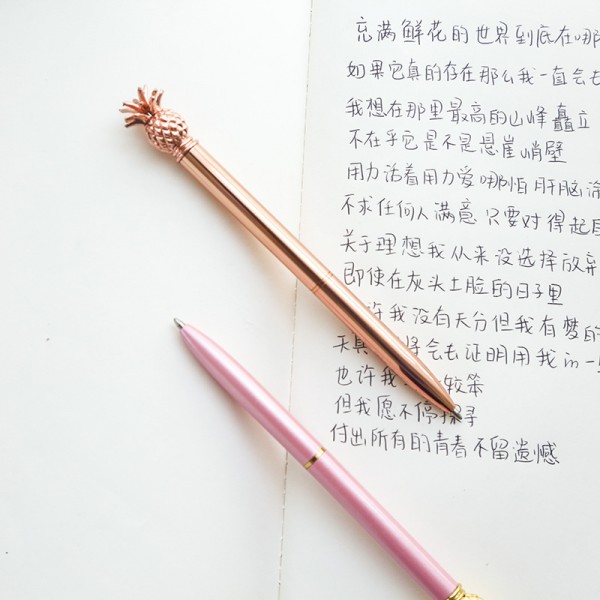 充满鲜花的世界到底在哪
如果它真的存在那么我一直会去
我想在那里最高的山峰矗立
不在乎它是不是悬崖峭壁
用力活着用力爱哪怕肝脑涂
不求任何人满意只要对得起自
关于理想我从来没选择放弃
即使在灰头土脸的日子里
许我没有天分但我有梦的
天真 将会去证明用我的一
也许我 较笨
但我愿不停探寻
付出所有的青春不留遗憾